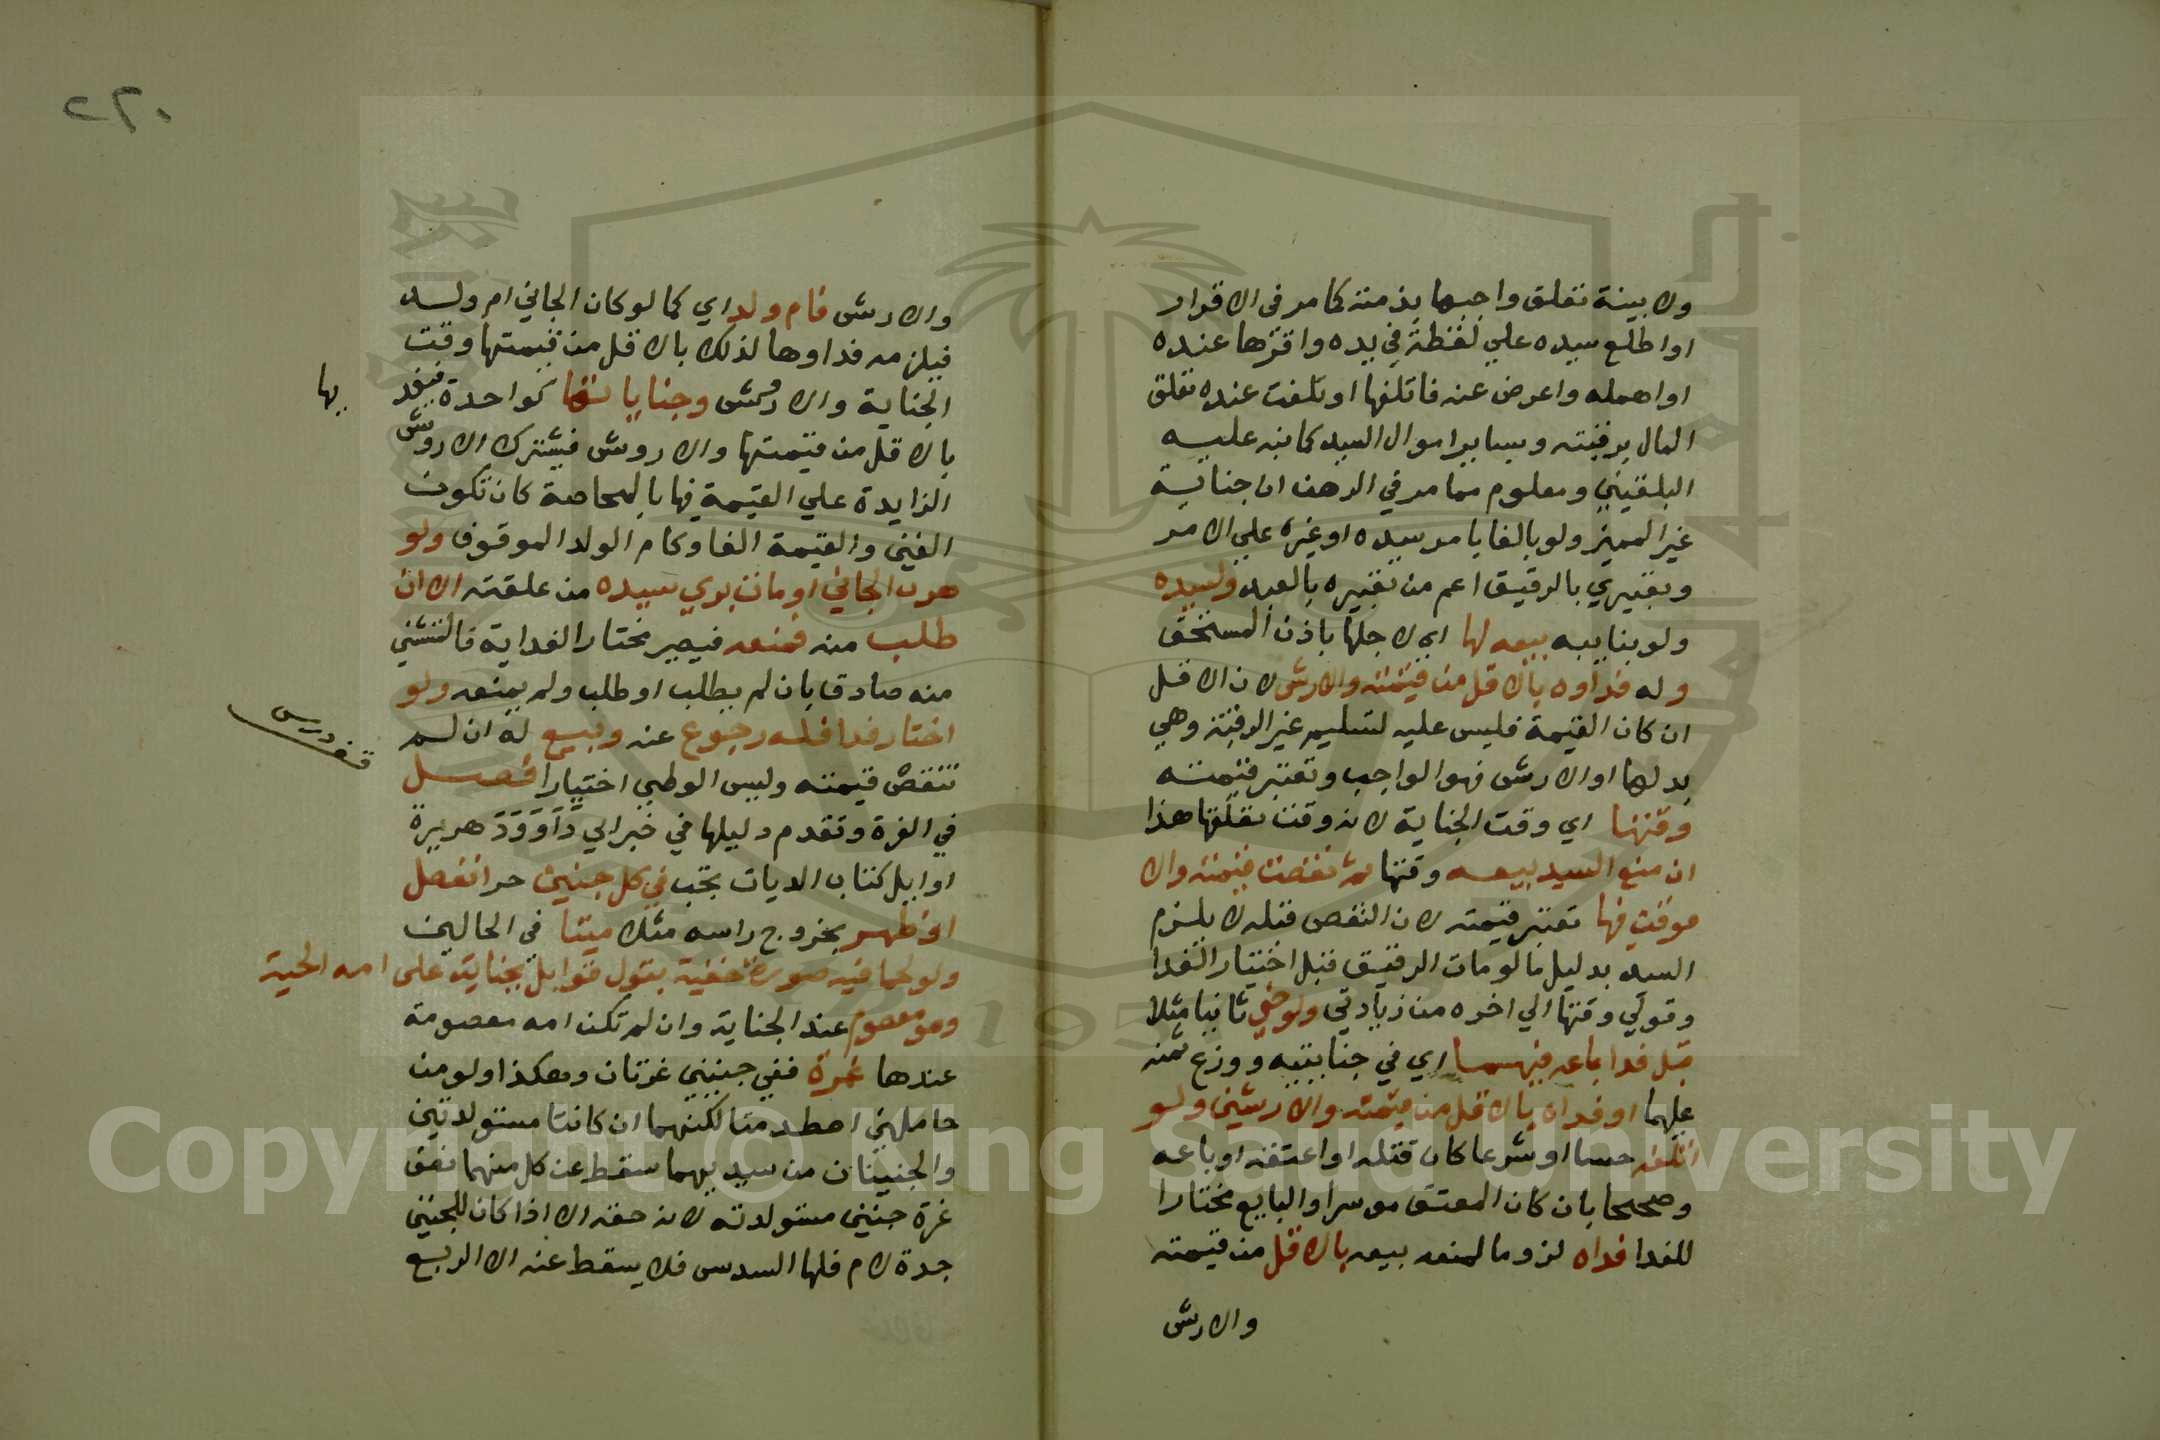 ولا بينة تعلق واجبها بذمته كما مر في الاقرار
او اطلع سيده علي لقطة في يده واقرها عنده
او اهمله واعرض عنه فاتلفها او تلفت عنده تعلق
المال برقبته وبساير اموال السيد كما نبه عليه
البلقيني ومعلوم مما مر في الرهن ان جناية
غير المميز ولو بالغا بامر سيده او غيره علي الامر
وتعبيري بالرقيق اعم من تعبيره بالعبد ولسيده
ولو بنايبه بيعه لها اي لاجلها باذن المستحق
وله فداوه بالاقل من قيمته والارش لان الاقل
ان كان القيمة فليس عليه تسليم غير الرقبة وهي
بدلها او الارش فهو الواجب وتعتبر قيمته
وقتها اي وقت الجناية لانه وقت تعلقها هذا
ان منع السيد بيعه وقتها ثم نقصت قيمته والا
فوقت فدا تعتبر قيمته لان النقص قبله لا يلزم
السيد بدليل ما لو مات الرقيق قبل اختيار الفدا
وقولي وقتها الي اخره من زيادتي ولو جني ثانيا مثلا
قبل فدا باعه فيهما اي في جنايتيه ووزع ثمنه
عليهما او فداه بالاقل من قيمته والارشين ولو
اتلفه حسا او شرعا كان قتله او اعتقه او باعه
وصححا بان كان المعتق موسرا والبايع مختارا
للفدا فداه لزوما لمنعه بيعه بالاقل من قيمته
والارش
٢٢٠
والارش كام ولد اي كما لو كان الجاني ام ولد
فيلزمه فداوها لذلك بالاقل من قيمتها وقت
الجناية والارش وجناياتها كواحدة فيفد
بها
بالاقل من قيمتها والاروش فيشترك الاروش
الزايدة علي القيمة فيها بالمحاصة كان تكون
الفين والقيمة الفا وكام الولد الموقوف ولو
هرب الجاني او مات بري سيده من علقته الا ان
طلب منه فمنعه فيصير مختارا لفدايه فالمستثني
منه صادق بان لم يطلب او طلب ولم يمنعه ولو
اختار فدا فله رجوع عنه وبيع له ان لم
تنقص قيمته وليس الوطي اختيارا فصل
في الغرة وتقدم دليلها في خبر ابي داوود هريرة
اوايل كتاب الديات تجب في كل جنين حر انفصل
او ظهر بخروج راسه مثلا ميتا في الحالين
ولو لحما فيه صورة خفية بقول قوابل بجناية على امه الحية
وهو معصوم عند الجناية وان لم تكن امه معصومة
عندها غرة ففي جنينين غرتان وهكذا ولو من
حاملين اصطدمتا لكنهما ان كانتا مستولدتين
والجنينان من سيديهما سقط عن كل منهما نصف
غرة جنين مستولدته لانه حقه الا اذا كان للجنين
جدة لام فلها السدس فلا يسقط عنه الا الربع